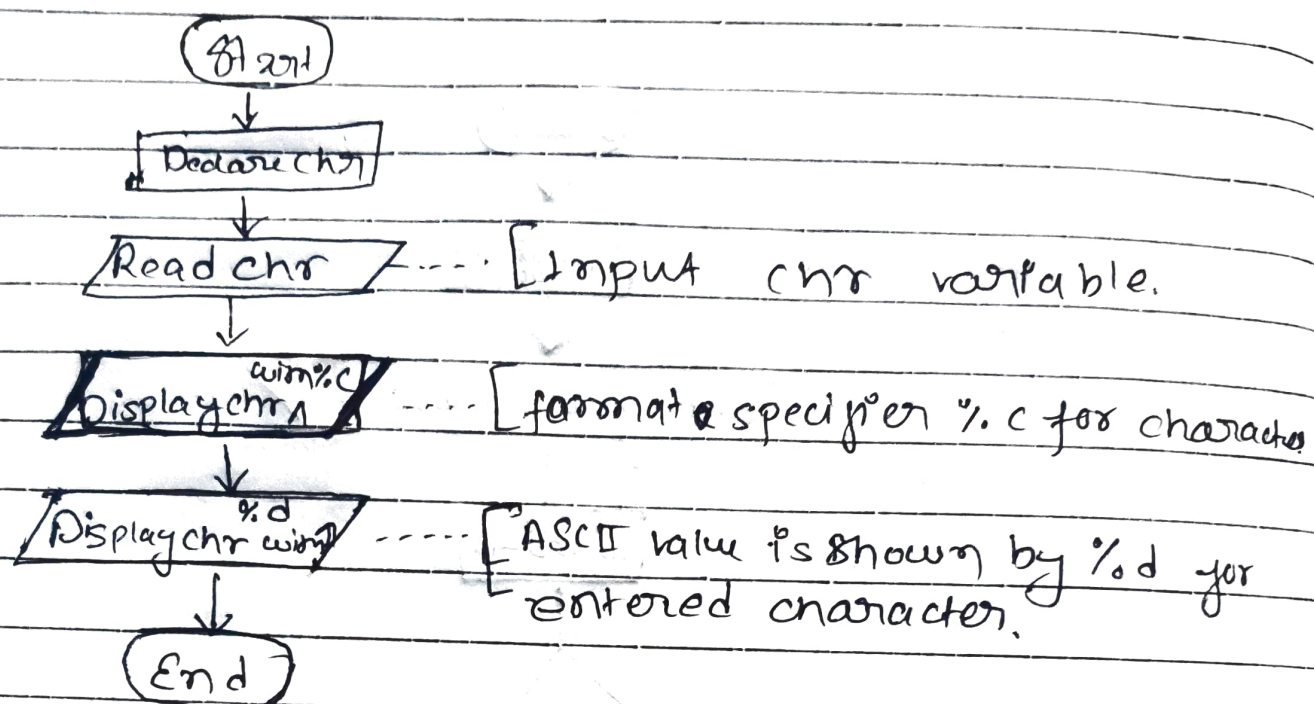 Start
Declare chr
Read chr
Input chr variable.
with %c
Display chr ^
format specifier %. c for character
%.d
Display chr with
ASCII value is shown by %d for
entered character.
End